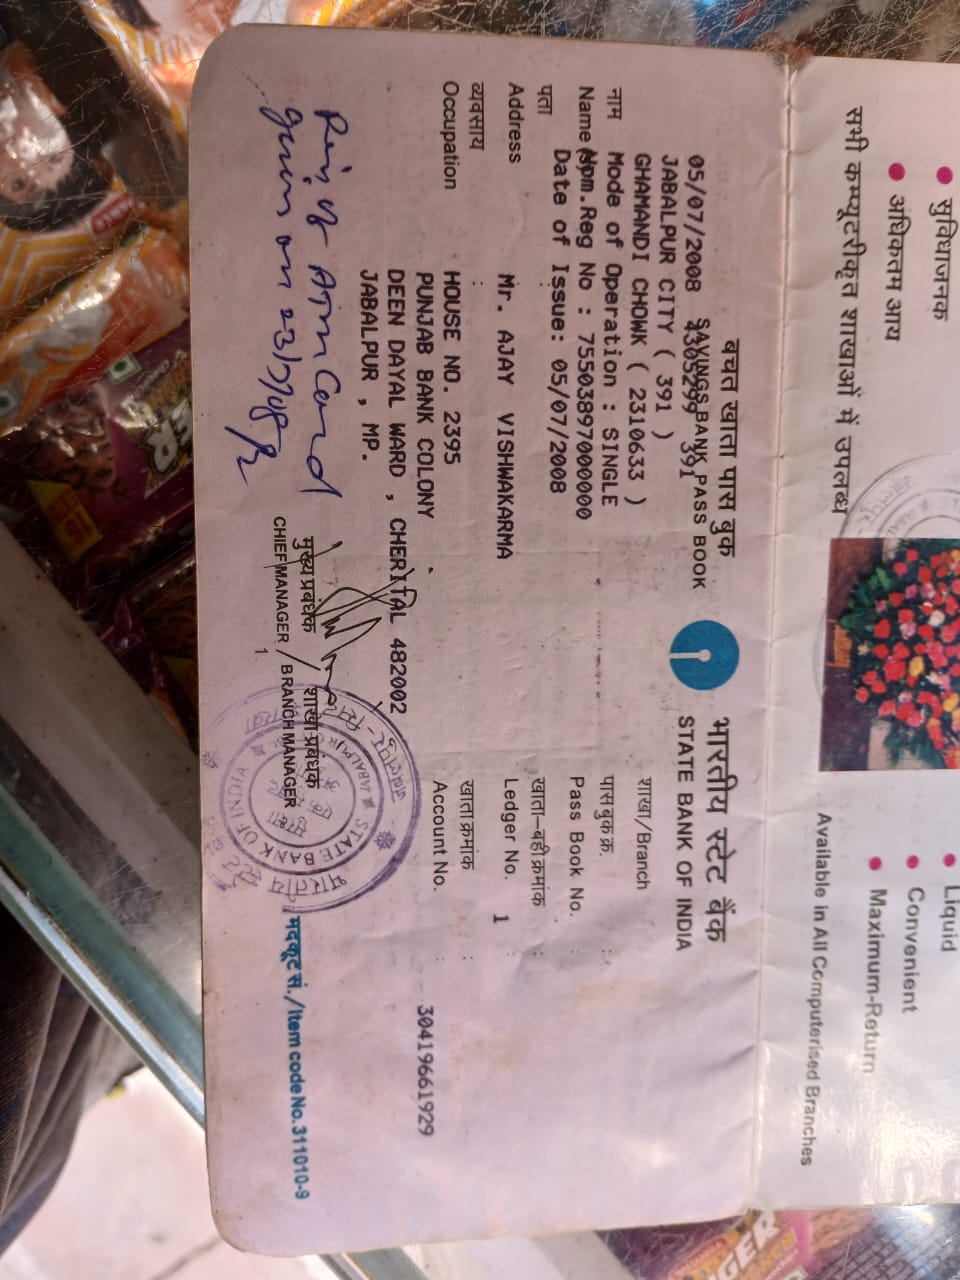 सुविधाजनक
अधिकतम आय
सभी कम्प्यूटरीकृत शाखाओं में उपलब्ध
Liquid
Convenient
Maximum-Return
Available in All Computerised Branches
बचत खाता पास बुक
SAVINGS BANK PASS BOOK
भारतीय स्टेट बैंक
STATE BANK OF INDIA
05/07/2008 4305299 391
JABALPUR CITY ( 391 )
GHAMANDI CHOWK ( 2310633 )
शाखा/Branch
नाम Mode of Operation : SINGLE
पास बुक क्र.
Name (s) Nom.Reg No : 7550389700000
Pass Book No. :
पता Date of Issue: 05/07/2008
खाता-बही क्रमांक :
Address : Mr. AJAY VISHWAKARMA
Ledger No. 1
व्यवसाय :
Occupation HOUSE NO. 2395
खाता क्रमांक :
Account No. : 30419661929
PUNJAB BANK COLONY
DEEN DAYAL WARD , CHERITAL 482002
JABALPUR , MP.
ATM Card
given on 23/7/08
मुख्य प्रबंधक / शाखा प्रबंधक
CHIEF MANAGER / BRANCH MANAGER
1
STATE BANK OF INDIA
JABALPUR
भारतीय
मदकूट सं./Item code No. 311010-9